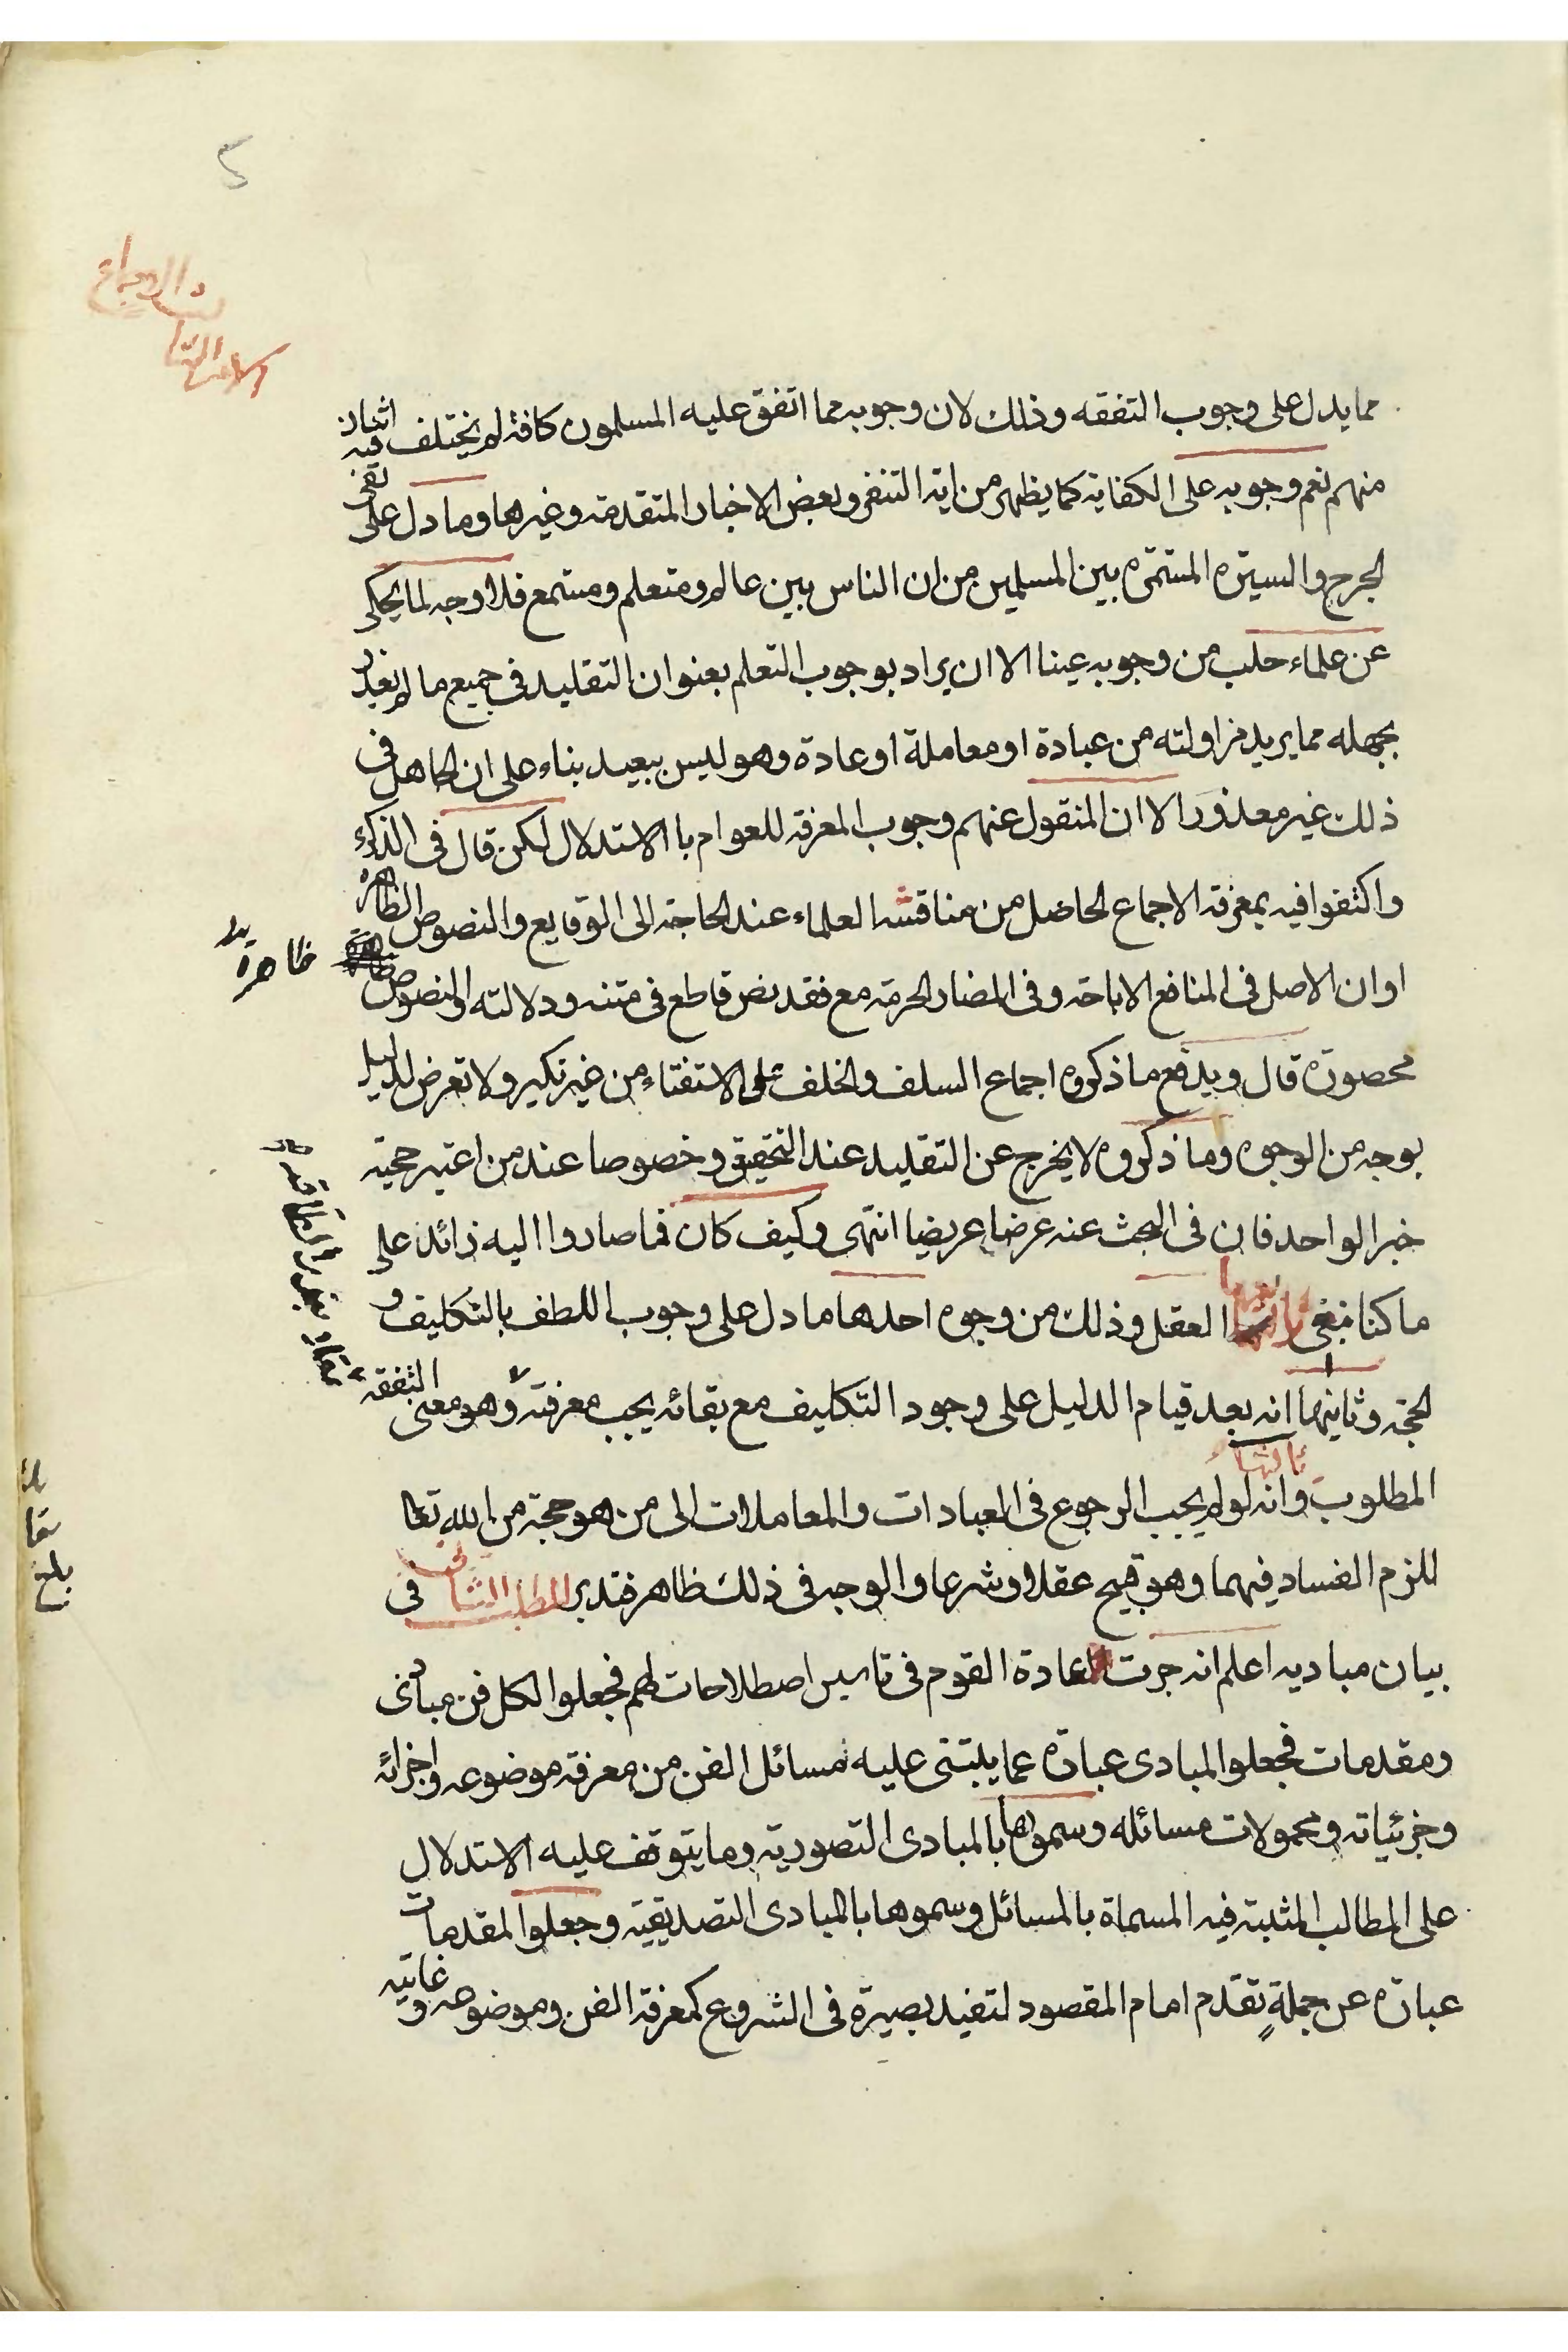 مما يدل على وجوب التفقه وذلك لان وجوبه مما اتفق عليه المسلمون كافة لم يختلف فيه اثنان
منهم نعم وجوبه على الكفاية كما يظهر من اية التنفر وبعض الاخبار المتقدمة وغيرها وما دل على نفى
الحرج والسيرة المستمرة بين المسلمين من ان الناس بين عالم ومتعلم ومستمع فلا وجه لما يحكى
عن علماء حلب من وجوبه عينا الا ان يراد بوجوب التعلم بعنوان التقليد فى جميع ما لم يعذر
بجهله مما يريد مزاولته من عبادة او معاملة او عادة وهو ليس ببعيد بناء على ان الجاهل فى
ذلك غير معذور الا ان المنقول عنهم وجوب المعرفة للعوام باالاستدلال لكن قال فى الذكرى
واكتفوا فيه بمعرفة الاجماع الحاصل من مناقشة العلماء عند الحاجة الى الوقايع والنصوص الظاهرة
او ان الاصل فى المنافع الاباحة وفى المضار الحرمة مع فقد نص قاطع فى متنه ودلالته والنصوص
ظاهرة
محصورة قال ويدفع ما ذكروه اجماع السلف والخلف على الاستفتاء من غير نكير ولا تعرض لدليل
بوجه من الوجوه وما ذكروه لا يخرج عن التقليد عند التحقيق وخصوصا عند من اعتبر حجية
خبر الواحد فان فى البحث عنه عرضا عريضا انتهى وكيف كان فما صاروا اليه زائد على
ما كنا نبغى العقل وذلك من وجوه احدها ما دل على وجوب اللطف بالتكليف و
الحجة وثانيها انه بعد قيام الدليل على وجود التكليف مع بقائه يجب معرفته وهو معنى التفقه
ثالثها
المطلوب وانه لو لم يجب الرجوع فى العبادات والمعاملات الى من هو حجة من الله تعا
للزم الفساد فيهما وهو قبيح عقلا وشرعا والوجه فى ذلك ظاهر فتدبر المطلب الثانى فى
بيان مباديه اعلم انه جرت عادة القوم فى تاسيس اصطلاحات لهم فجعلوا لكل فن مبادى
ومقدمات فجعلوا المبادى عبارة عما يبتنى عليه مسائل الفن من معرفة موضوعه واجزائه
وجزئياته ومحمولات مسائله وسموها بالمبادى التصورية وما يتوقف عليه الاستدلال
على المطالب المثبتة فيه المسماة بالمسائل وسموها بالمبادى التصديقية وجعلوا المقدمات
عبارة عن جملة تقدم امام المقصود لتفيد بصيرة فى الشروع كمعرفة الفن وموضوعه وغايته